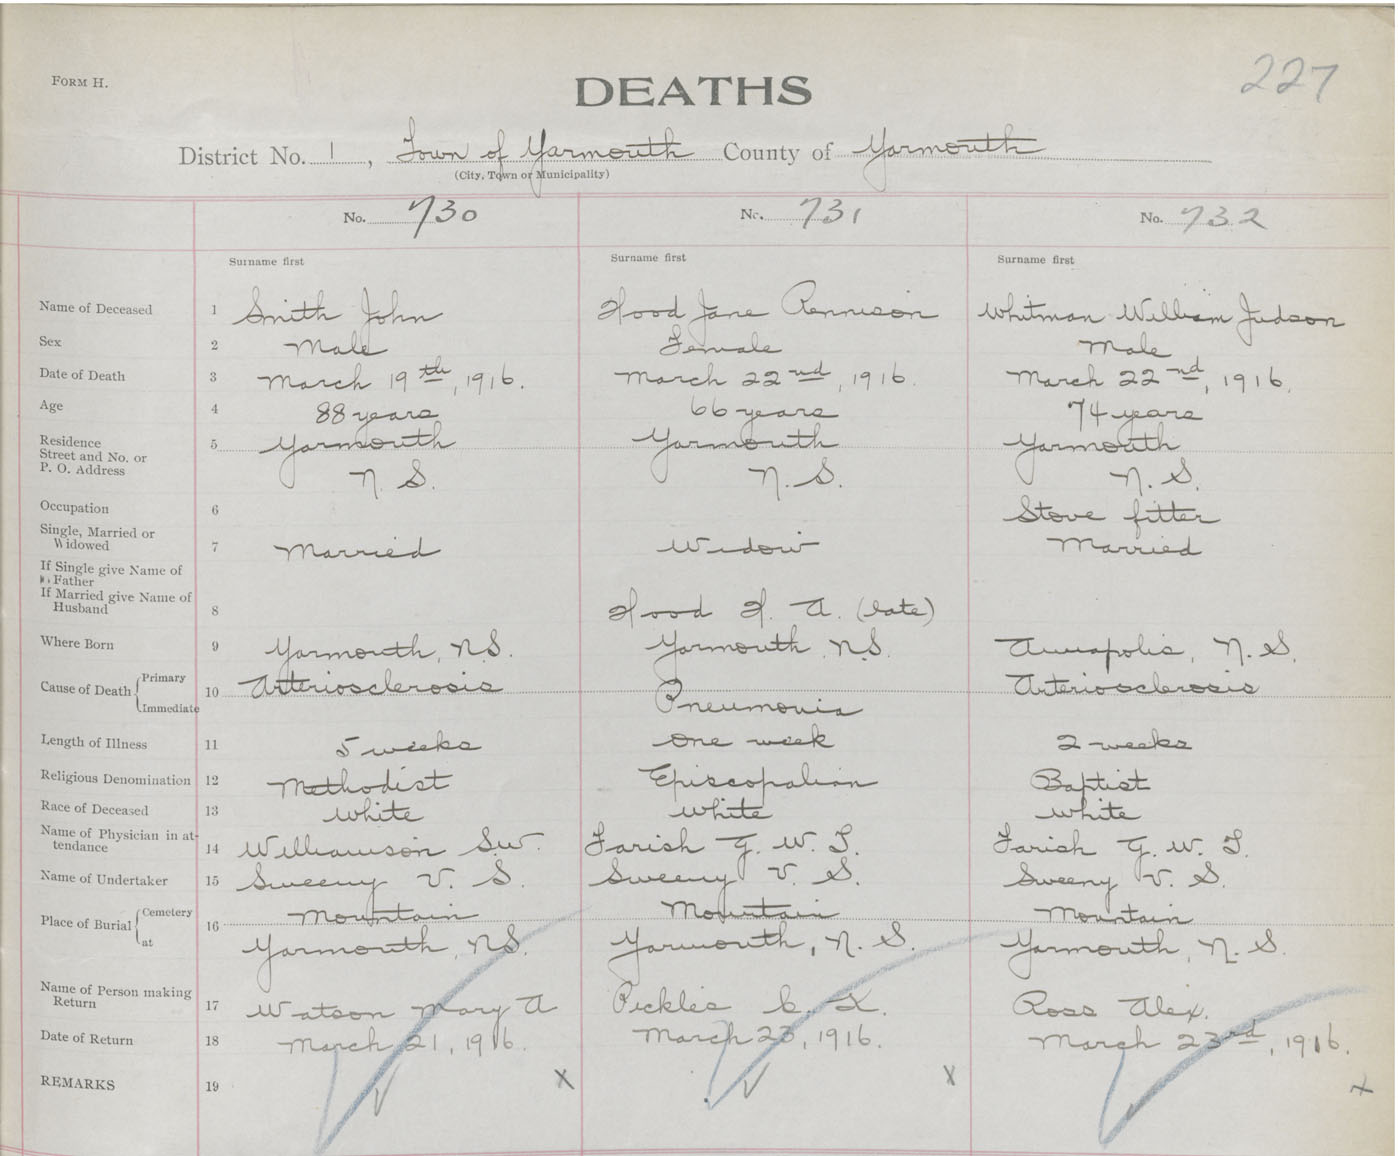 FORM H.
DEATHS
227
District No. 1, Town of Yarmouth County of Yarmouth
(City, Town or Municipality)
No. 730 No. 731 No. 732
Surname first Surname first Surname first
Name of Deceased 1 Smith John Hood Jane Rennison Whitman William Judson
Sex 2 Male Female Male
Date of Death 3 March 19th, 1916. March 22nd, 1916. March 22nd, 1916.
Age 4 88 years 66 years 74 years
Residence
Street and No. or
P. O. Address
5 Yarmouth Yarmouth Yarmouth
N. S. N. S. N. S.
Occupation 6 Stove fitter
Single, Married or
Widowed 7 Married Widow Married
If Single give Name of
Father
If Married give Name of
Husband 8 Hood H. A. (late)
Where Born 9 Yarmouth, N.S. Yarmouth N.S. Annapolis, N. S.
Cause of Death Primary
Immediate
10 Arteriosclerosis Pneumonia Arteriosclerosis
Length of Illness 11 5 weeks one week 2 weeks
Religious Denomination 12 Methodist Episcopalian Baptist
Race of Deceased 13 White White White
Name of Physician in at-
tendance 14 Williamson S.W. Farish G. W. T. Farish G. W. T.
Name of Undertaker 15 Sweeny V. S. Sweeny V. S. Sweeny V. S.
Place of Burial Cemetery
at
16 Mountain Mountain Mountain
Yarmouth, N.S. Yarmouth, N. S. Yarmouth, N. S.
Name of Person making
Return 17 Watson Mary A Pickles Ross Alex.
Date of Return 18 March 21, 1916. March 23, 1916. March 23rd, 1916.
REMARKS 19 x x x